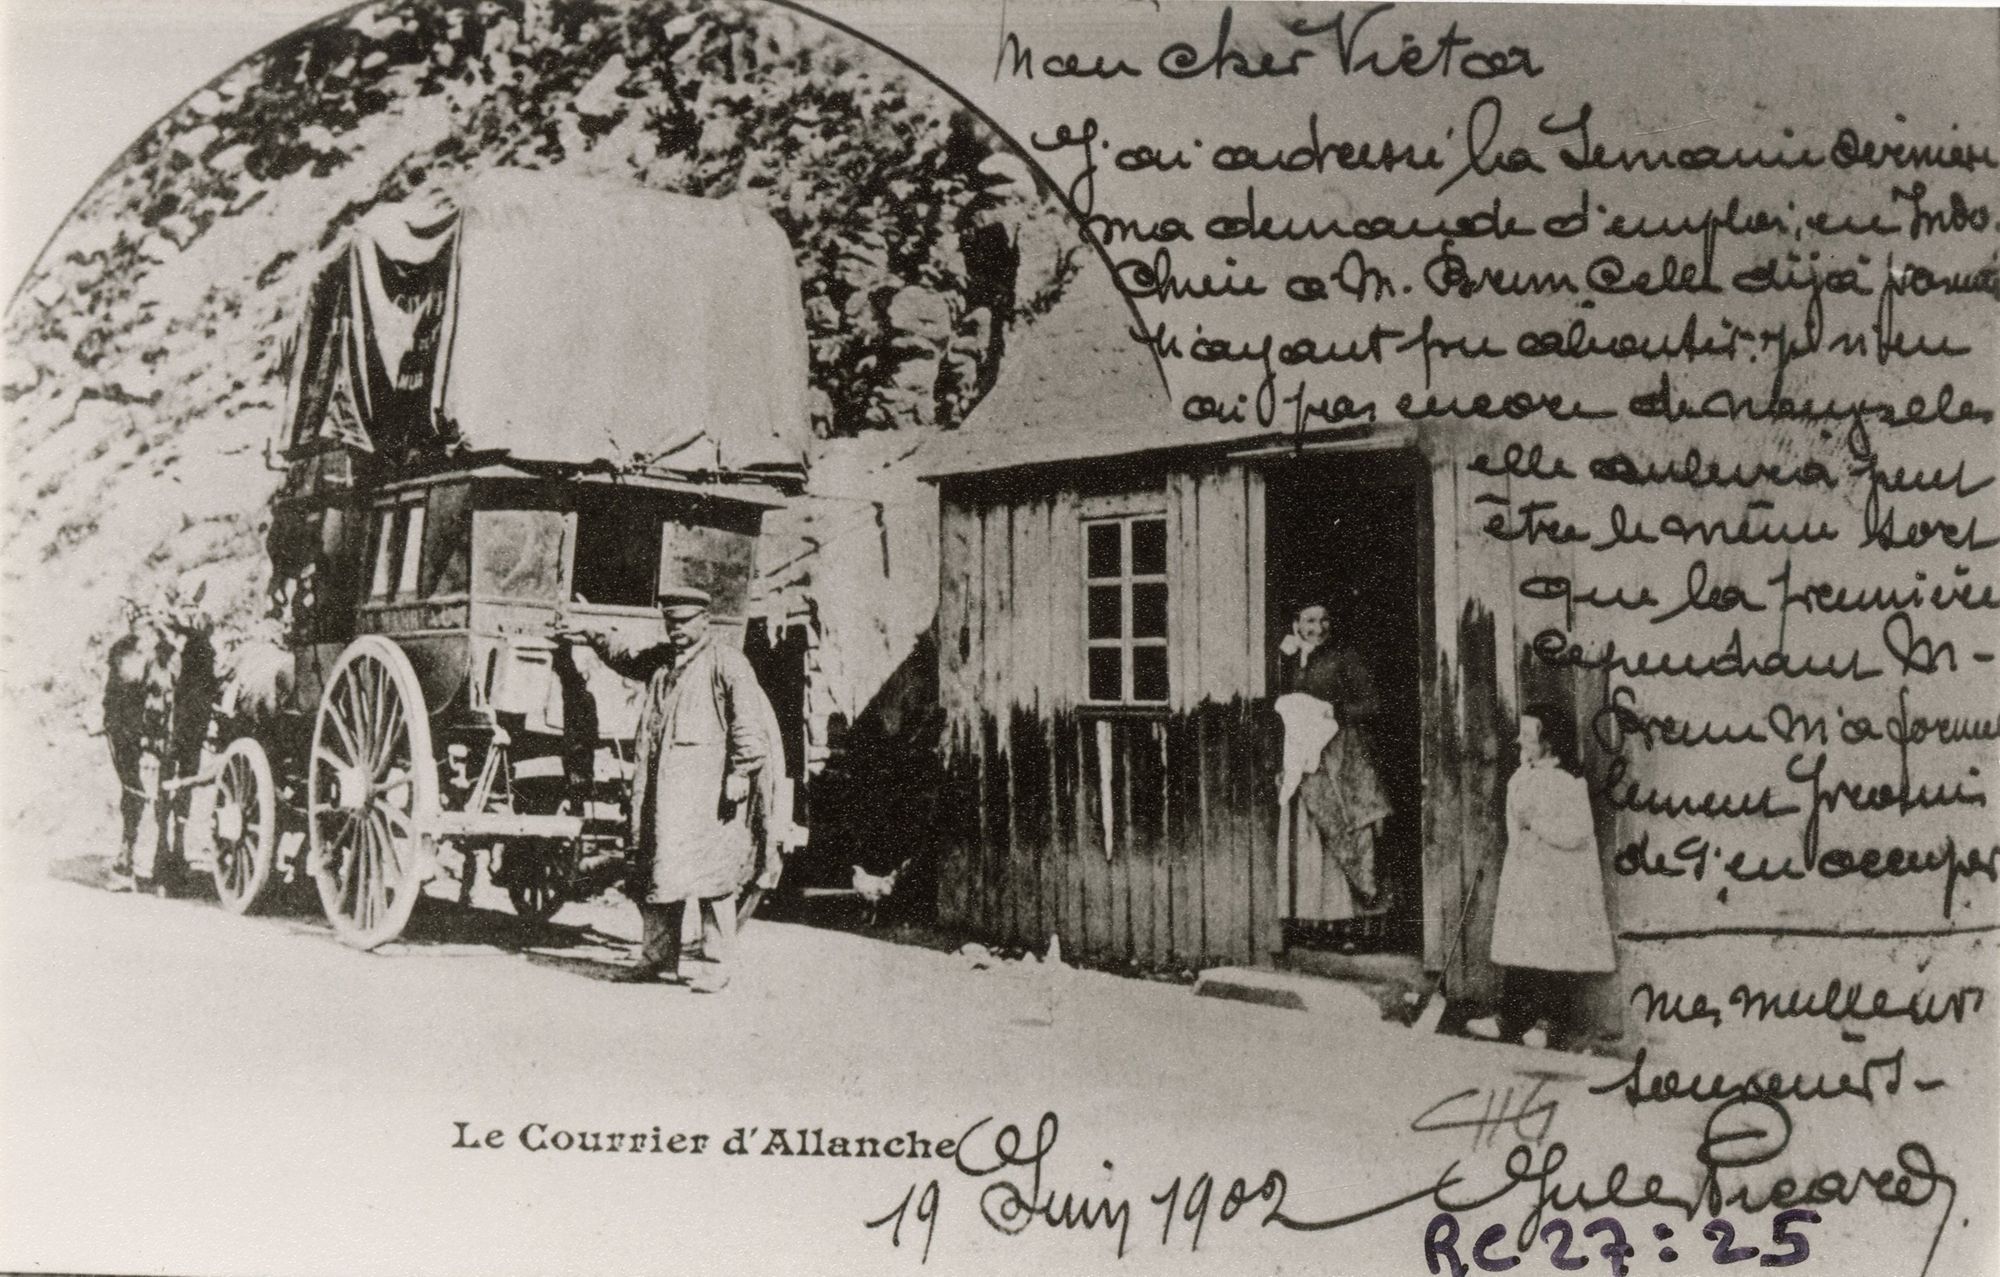 Mon cher Victor
J'ai adressé la Semaine dernière
ma demande d'emploi, en Indo-
Chine a M. Brun Celle déjà
n'ayant pu aboutir. Je n'en
ai pas encore de nouvelles
elle aulera peut
être le même sort
que la première
cependant M-
Brun M'a formel
lement promis
de S'en occuper
mes meilleurs
souvenirs-
Jules Picard
19 Juin 1902
Le Courrier d'Allanche
RC 27:25